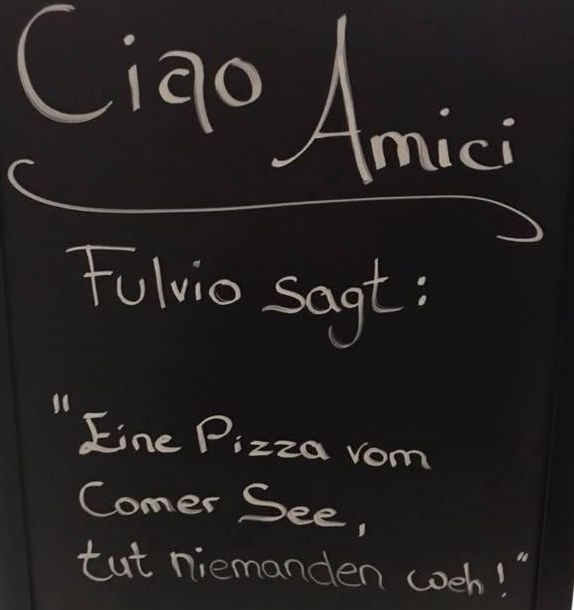 Ciao
Amici
Fulvio sagt:
"Eine Pizza vom
Comer See,
tut niemanden weh!"